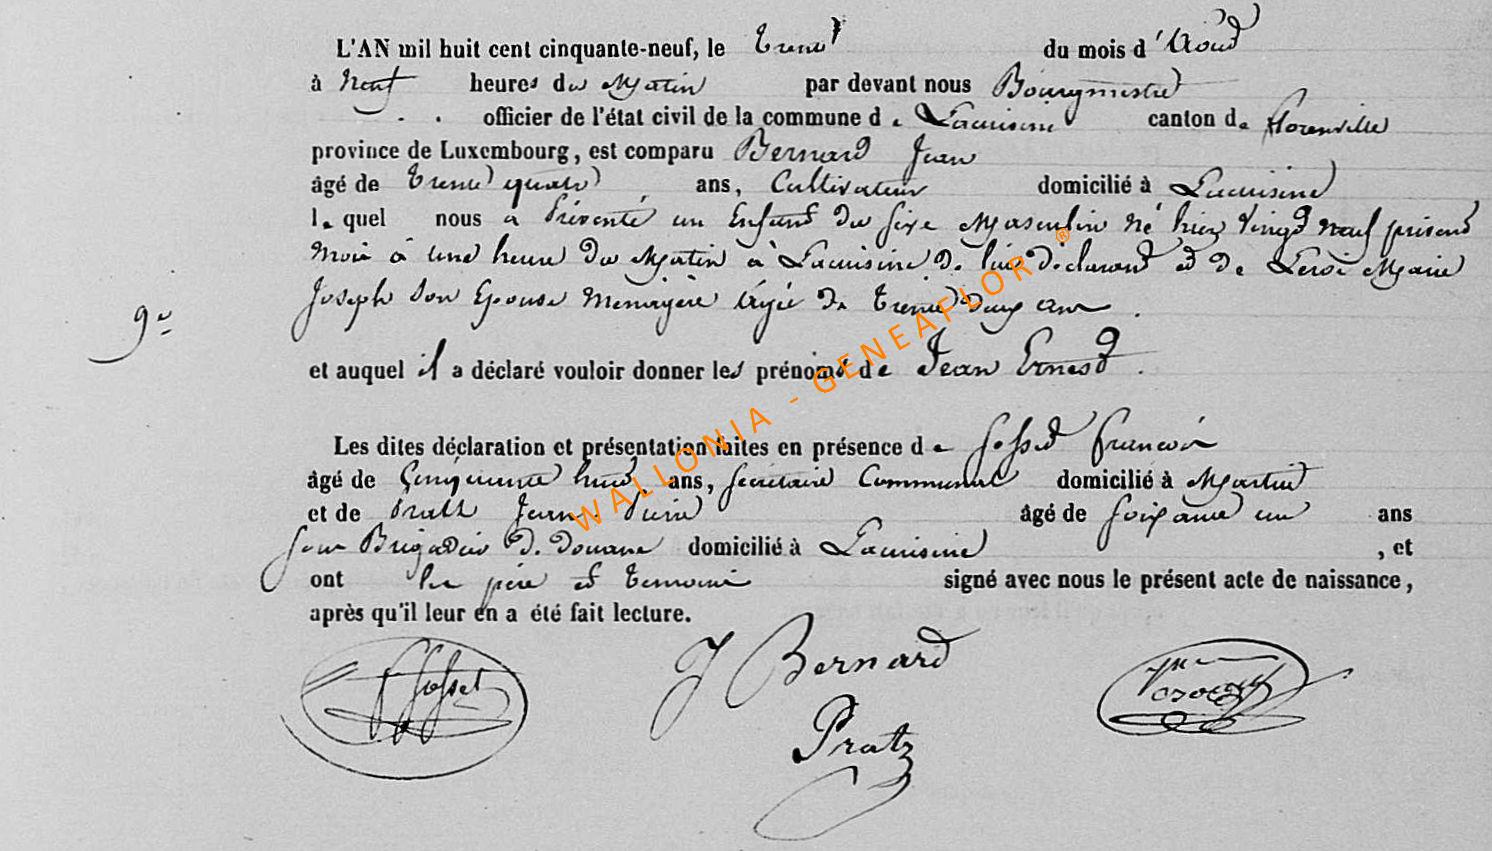 L'AN mil huit cent cinquante-neuf, le trente du mois d'Aoûd
à neuf heures du Matin par devant nous Bourgmestre
officier de l'état civil de la commune de Lacuisine canton de florenville
province de Luxembourg, est comparu Bernard Jean
âgé de trente quatre ans, Cultivateur domicilié à Lacuisine
lequel nous a présenté un Enfant du sexe Masculin né hier vingd neuf présend
Mois à une heure du Matin à Lacuisine de lui déclarand et de Leroi Marie
Joseph son Epouse Menagère âgée de trente deux ans.
9e
et auquel il a déclaré vouloir donner les prénoms de Jean Ernesd.
Les dites déclaration et présentation faites en présence de Gossed francois
âgé de Cinquante huid ans, secrétaire Communal domicilié à Martué
et de Jean Pierre âgé de soixante un ans
Brigadier de douane domicilié à Lacuisine, et
ont les père et temoins signé avec nous le présent acte de naissance,
après qu'il leur en a été fait lecture.
Gosset J Bernard
Pratz
WALLONIA - GENEAFLOR ®